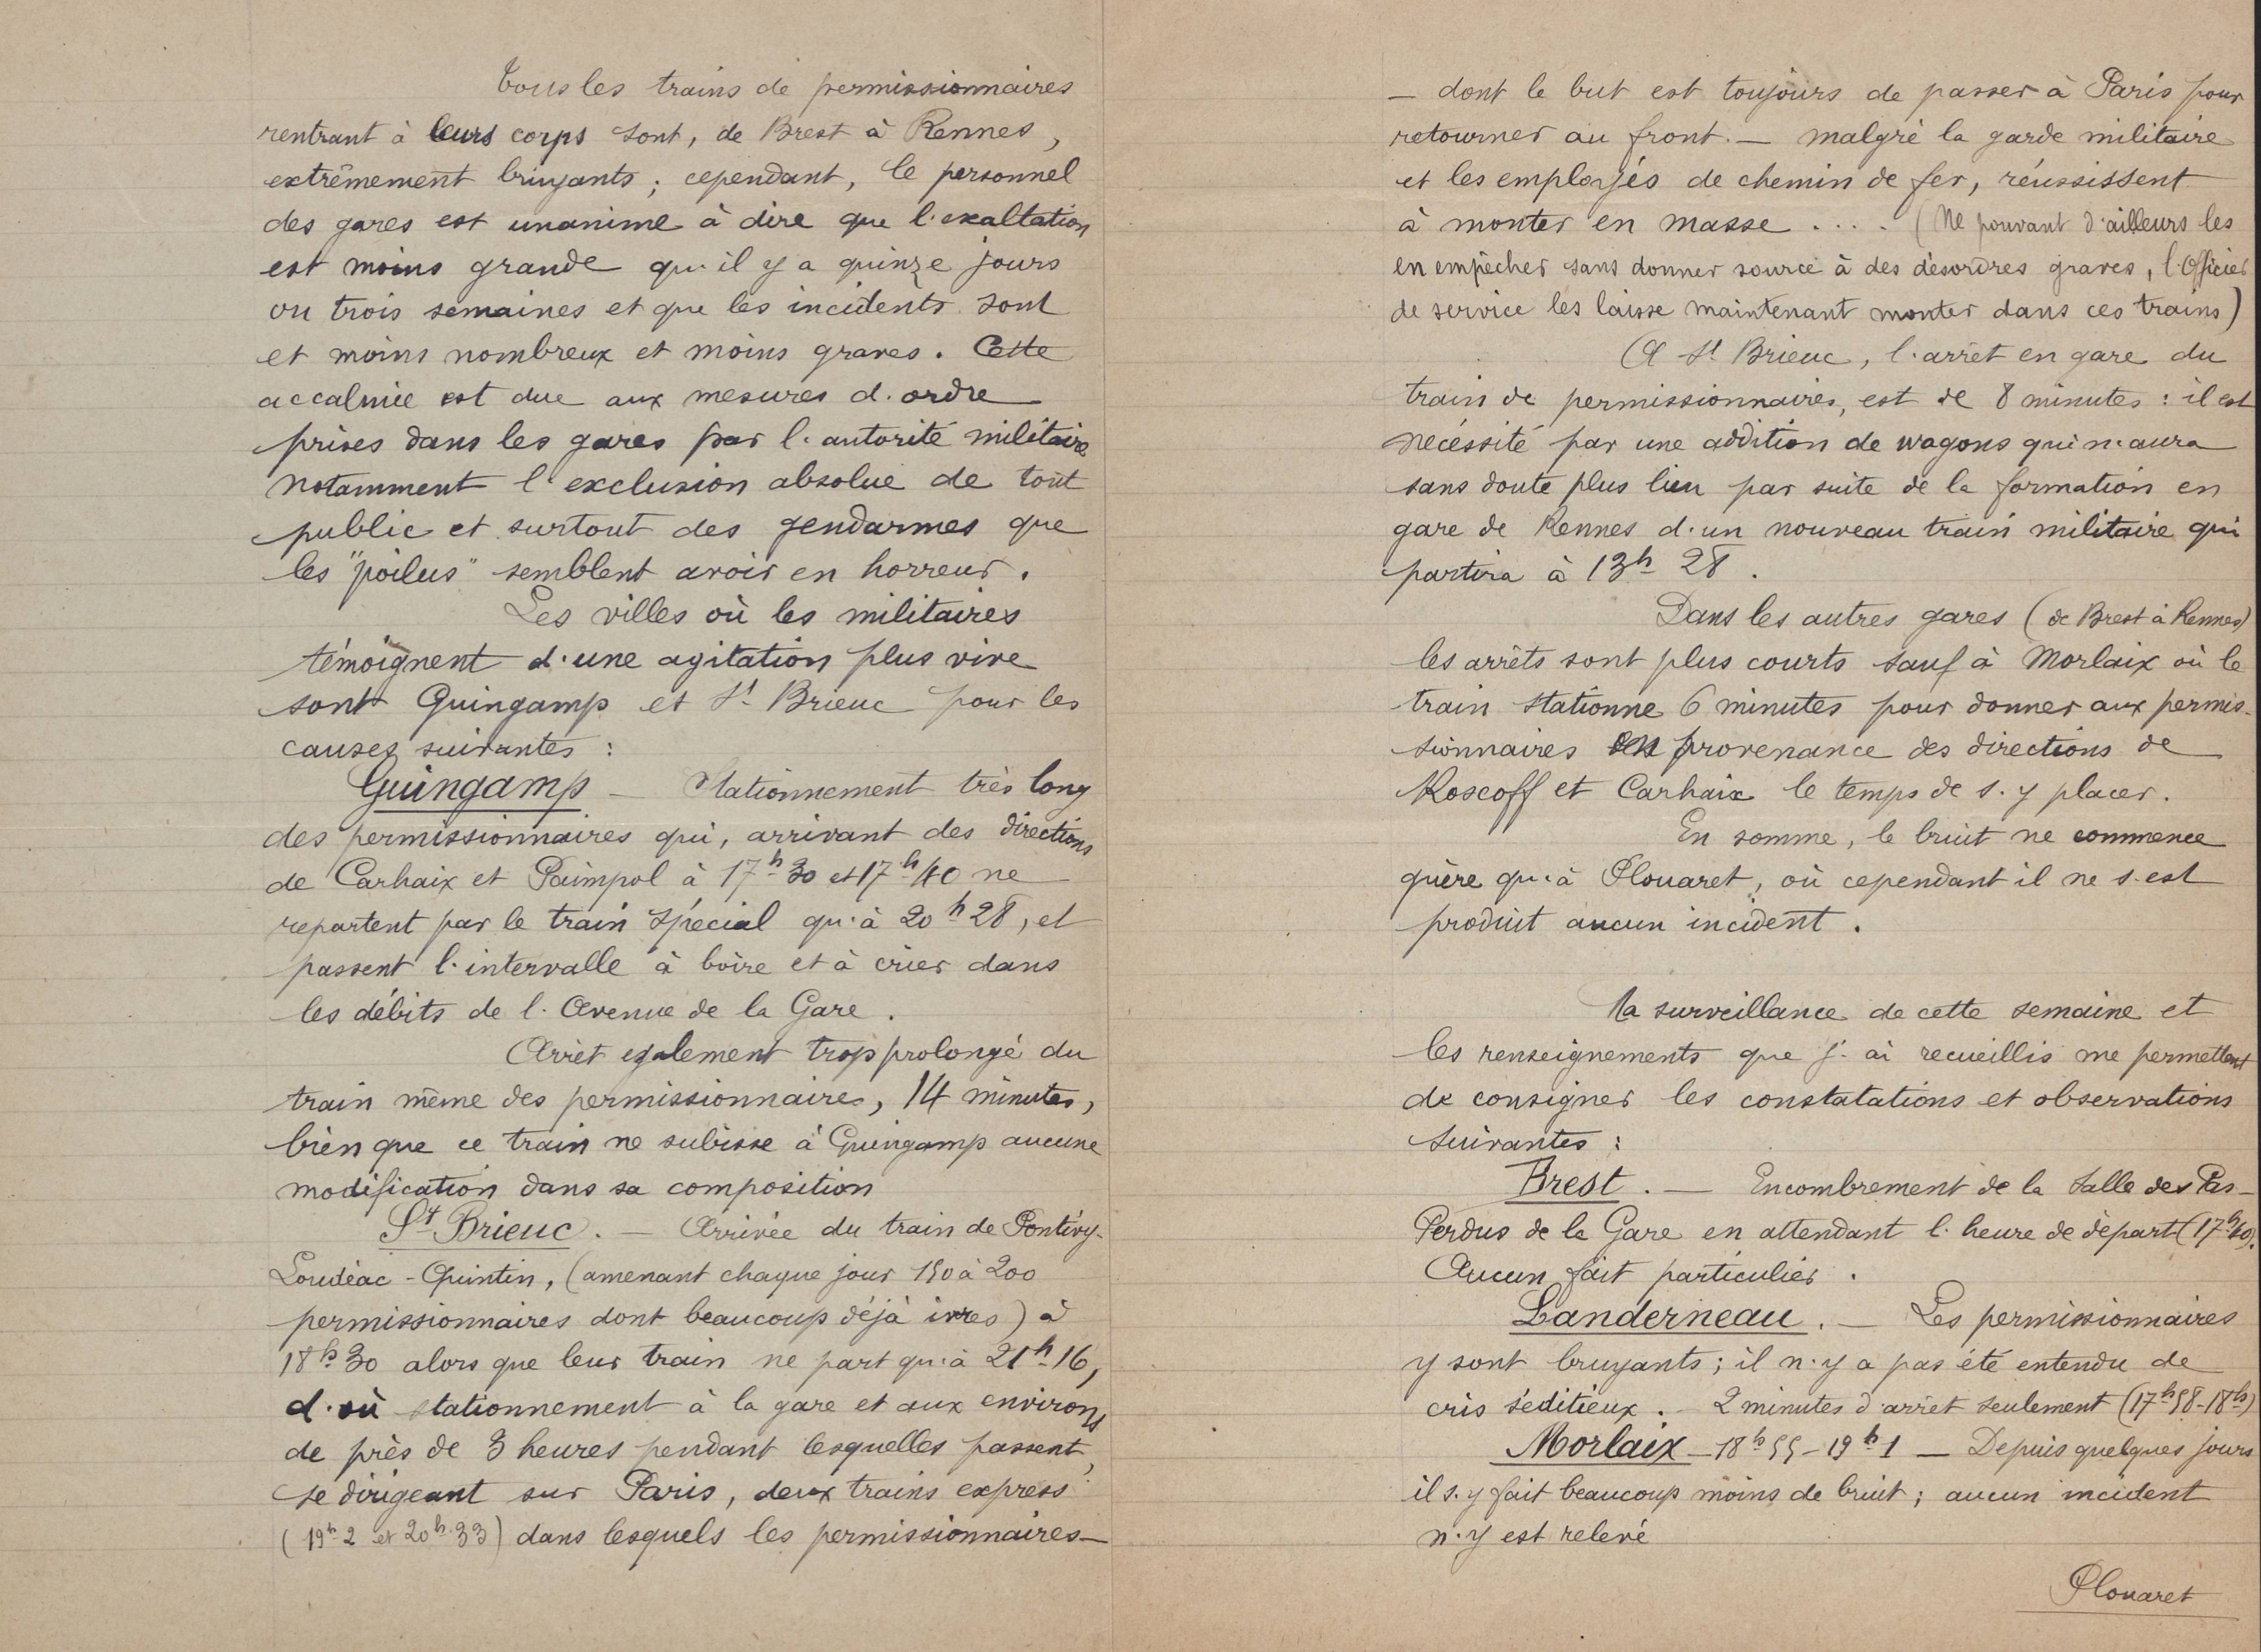 Tous les trains de permissionnaires
rentrant à leurs corps sont, de Brest à Rennes,
extrêmement bruyants ; cependant, le personnel
des gares est unanime à dire que l'exaltation
est moins grande qu'il y a quinze jours
ou trois semaines et que les incidents sont
et moins nombreux et moins graves. Cette
accalmie est due aux mesures d'ordre
prises dans les gares par l'autorité militaire
notamment l'exclusion absolue de tout
public et surtout des gendarmes que
les "poilus" semblent avoir en horreur.
Les villes où les militaires
témoignent d'une agitation plus vive
sont Guingamp et St Brieuc pour les
causes suivantes :
Guingamp — Stationnement très long
des permissionnaires qui, arrivant des directions
de Carhaix et Paimpol à 17h 30 et 17h 40 ne
repartent par le train spécial qu'à 20h 28, et
passent l'intervalle à boire et à crier dans
les débits de l'Avenue de la Gare.
Arrêt également trop prolongé du
train même des permissionnaires, 14 minutes,
bien que ce train ne subisse à Guingamp aucune
modification dans sa composition
St Brieuc. — Arrivée du train de Pontivy-
Loudéac - Quintin, (amenant chaque jour 150 à 200
permissionnaires dont beaucoup déjà ivres) à
18h 30 alors que leur train ne part qu'à 21h 16,
d'où stationnement à la gare et aux environs
de près de 3 heures pendant lesquelles passent,
se dirigeant sur Paris, deux trains express
(19h 2 et 20h 33) dans lesquels les permissionnaires —
— dont le but est toujours de passer à Paris pour
retourner au front. — malgré la garde militaire
et les employés de chemin de fer, réussissent
à monter en masse .... (Ne pouvant d'ailleurs les
en empêcher sans donner source à des désordres graves, l'Officier
de service les laisse maintenant monter dans ces trains)
A St Brieuc, l'arrêt en gare du
train de permissionnaires, est de 8 minutes : il est
nécessité par une addition de wagons qui n'aura
sans doute plus lieu par suite de la formation en
gare de Rennes d'un nouveau train militaire qui
partira à 13h 28.
Dans les autres gares (de Brest à Rennes)
les arrêts sont plus courts sauf à Morlaix où le
train stationne 6 minutes pour donner aux permis-
sionnaires en provenance des directions de
Roscoff et Carhaix le temps de s'y placer.
En somme, le bruit ne commence
guère qu'à Plouaret, où cependant il ne s'est
produit aucun incident.
La surveillance de cette semaine et
les renseignements que j'ai recueillis me permettent
de consigner les constatations et observations
suivantes :
Brest. — Encombrement de la Salle des Pas-
Perdus de la Gare en attendant l'heure de départ (17h 40).
Aucun fait particulier.
Landerneau. — Les permissionnaires
y sont bruyants ; il n'y a pas été entendu de
cris séditieux. — 2 minutes d'arrêt seulement (17h 58 - 18h)
Morlaix — 18h 55 - 19h 1 — Depuis quelques jours
il s'y fait beaucoup moins de bruit ; aucun incident
n'y est relevé
Plouaret